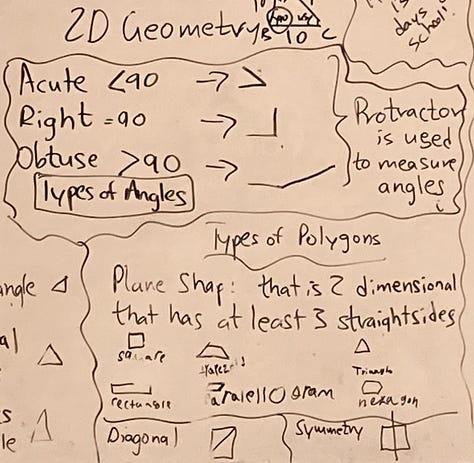 2D Geometry
B 10 C
days
school!
Acute <90 →
Right =90 →
Obtuse >90 →
Types of Angles
Protractor
is used
to measure
angles
Types of Polygons
Plane Shap: that is 2 dimensional
that has at least 3 straightsides
square
Triangle
rectangle
aralellogram
hexagon
angle
al
s
le
Diagonal
Symmetry